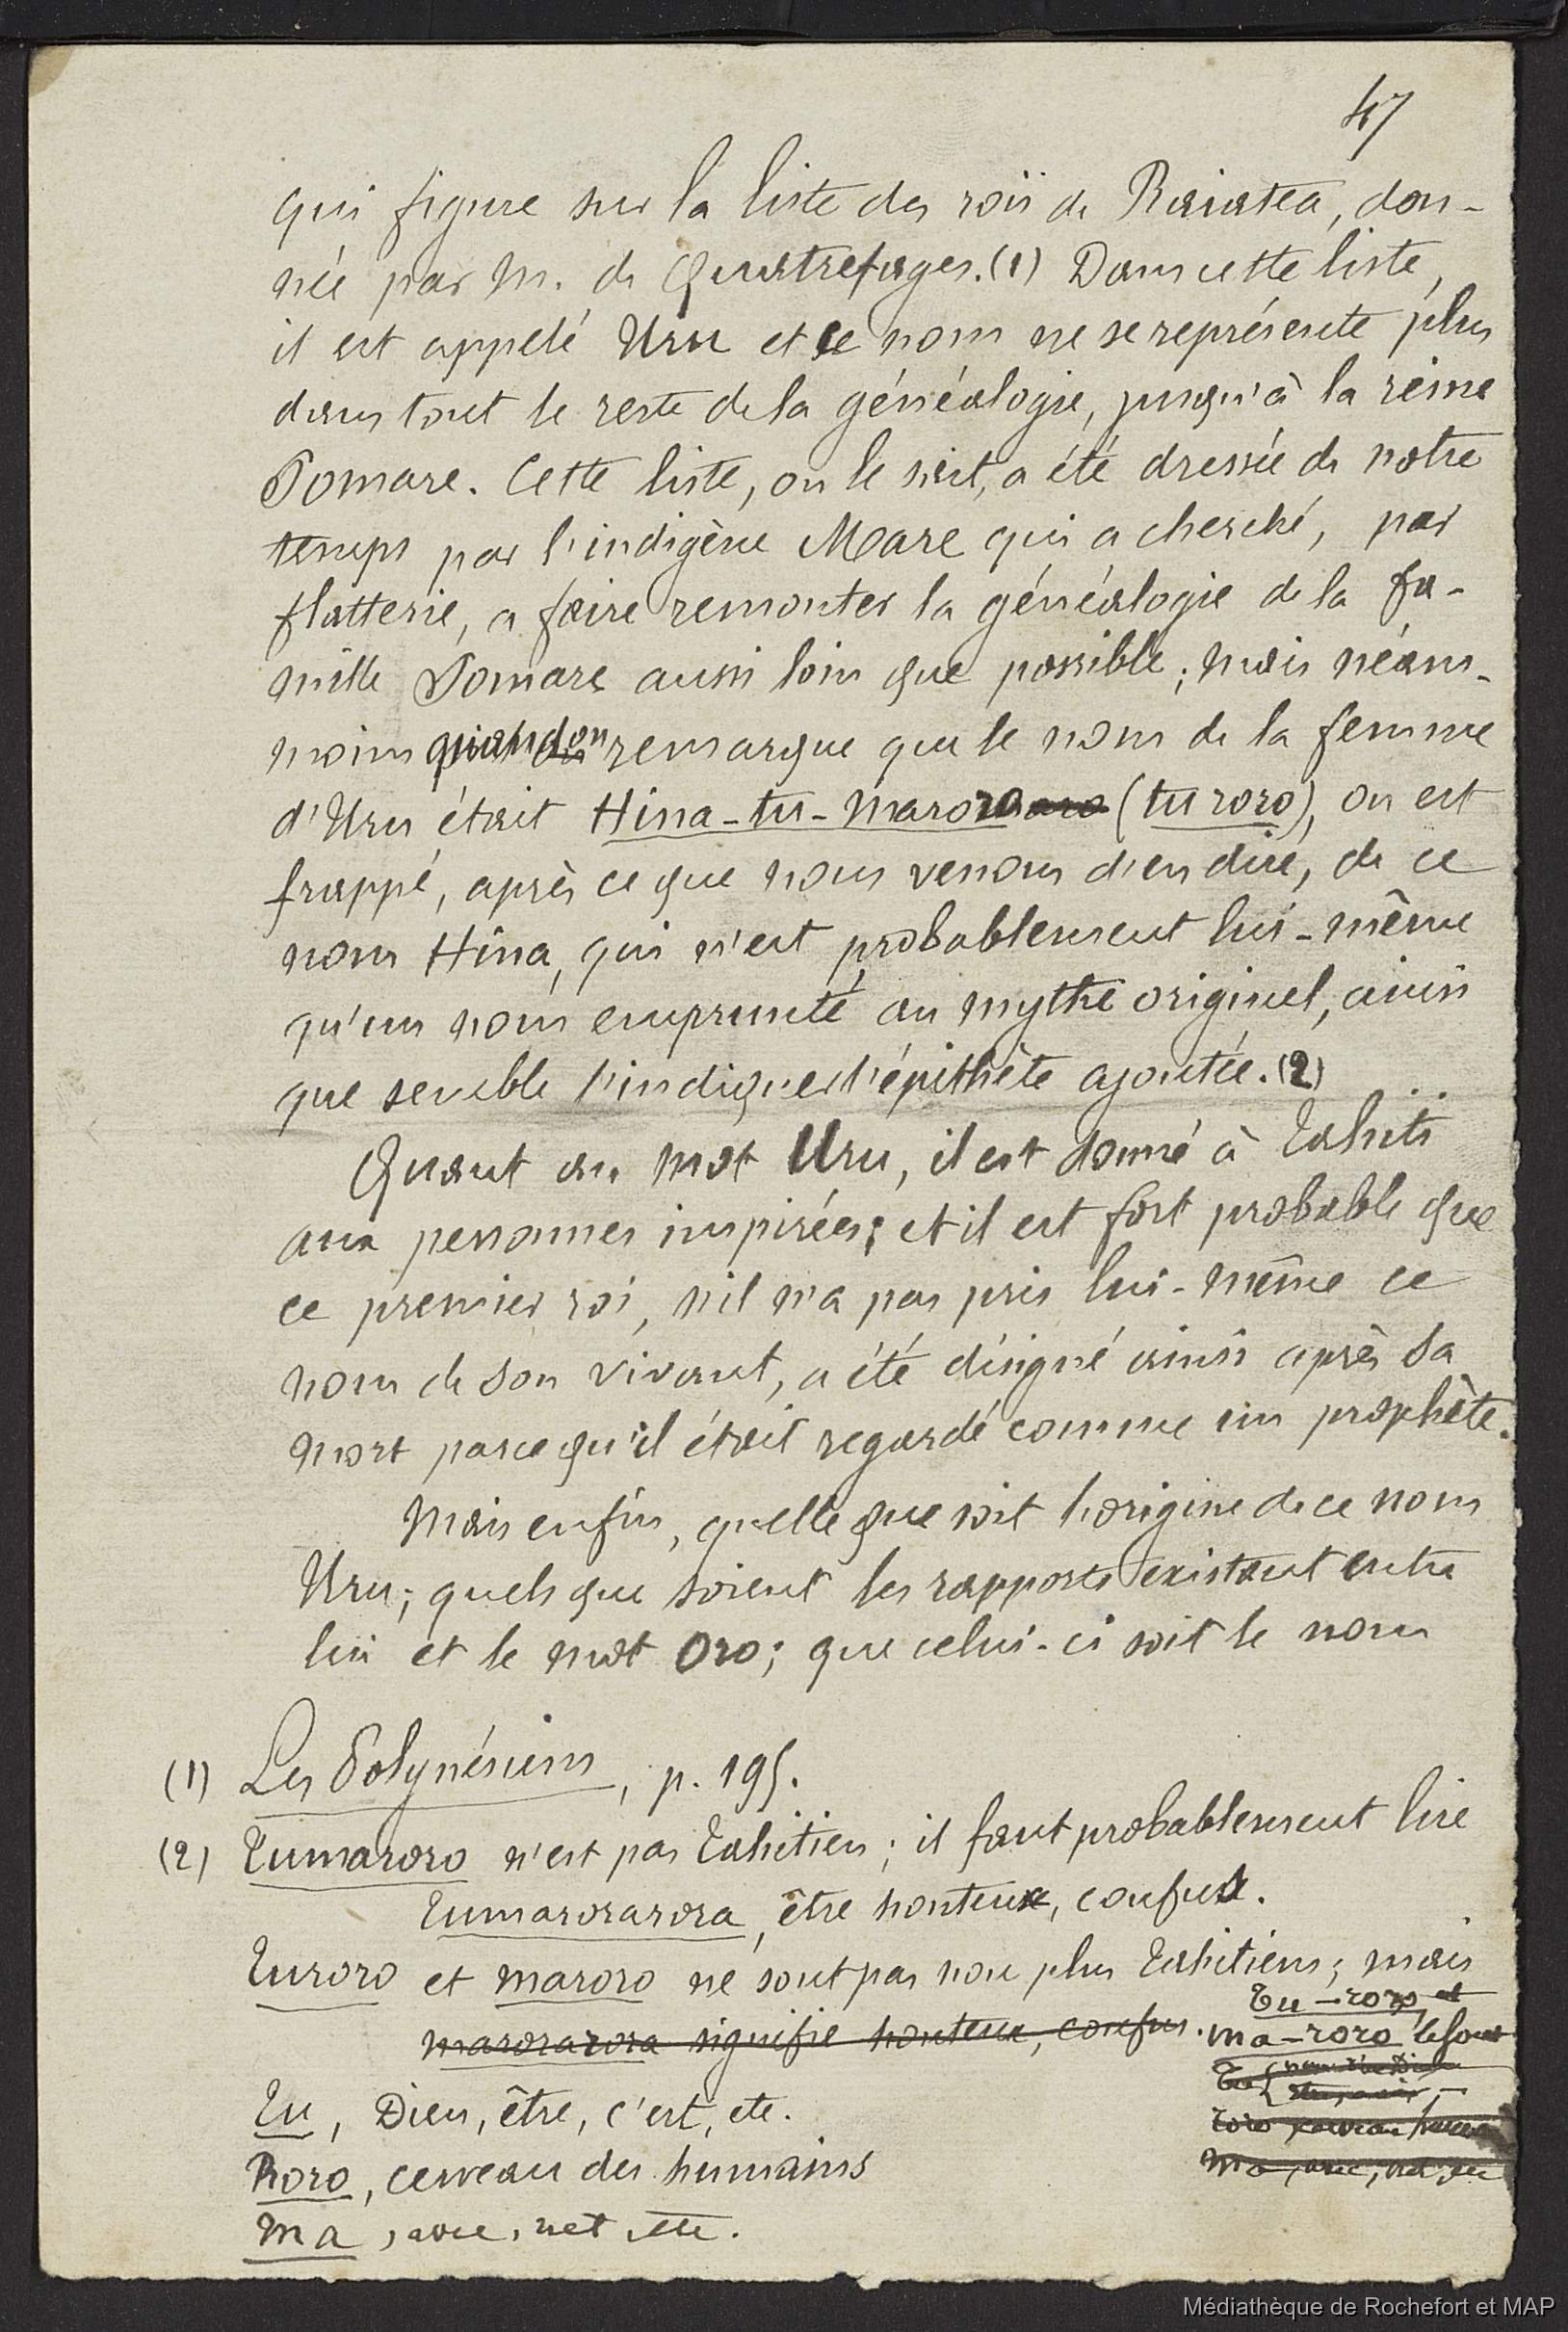 47
qui figure sur la liste des rois de Raiatea, don-
née par M. de Quatrefages. (1) Dans cette liste,
il est appelé Uru et ce nom ne se représente plus
dans tout le reste de la généalogie, jusqu'à la reine
Pomare. Cette liste, on le sait, a été dressée de notre
temps par l'indigène Mare qui a cherché, par
flatterie, a faire remonter la généalogie de la fa-
mille Pomare aussi loin que possible; mais néan-
moins quand on remarque que le nom de la femme
d'Uru était Hina-tu-maroro (tu roro), on est
frappé, après ce que nous venons d'en dire, de ce
nom Hina, qui n'est probablement lui-même
qu'un nom emprunté au mythe originel, ainsi
que semble l'indiquer l'épithète ajoutée. (2)
Quant au mot Uru, il est donné à Tahiti
aux personnes inspirées; et il est fort probable que
ce premier roi, s'il n'a pas pris lui-même ce
nom de son vivant, a été désigné ainsi après sa
mort parce qu'il était regardé comme un prophète.
Mais enfin, quelle que soit l'origine de ce nom
Uru; quels que soient les rapports existant entre
lui et le mot Oro; que celui-ci soit le nom
(1) Les Polynésiens, p. 195.
(2) Tumaroro n'est pas Tahitien; il faut probablement lire
Tumarorarora, être honteux, confus.
Turoro et maroro ne sont pas non plus Tahitiens; mais
Tu-roro et
marorarora signifie honteux, confus. ma-roro le sont
Tu, Dieu, être, c'est, etc.
Roro, cerveau des humains
Ma, avec, net etc.
Médiathèque de Rochefort et MAP